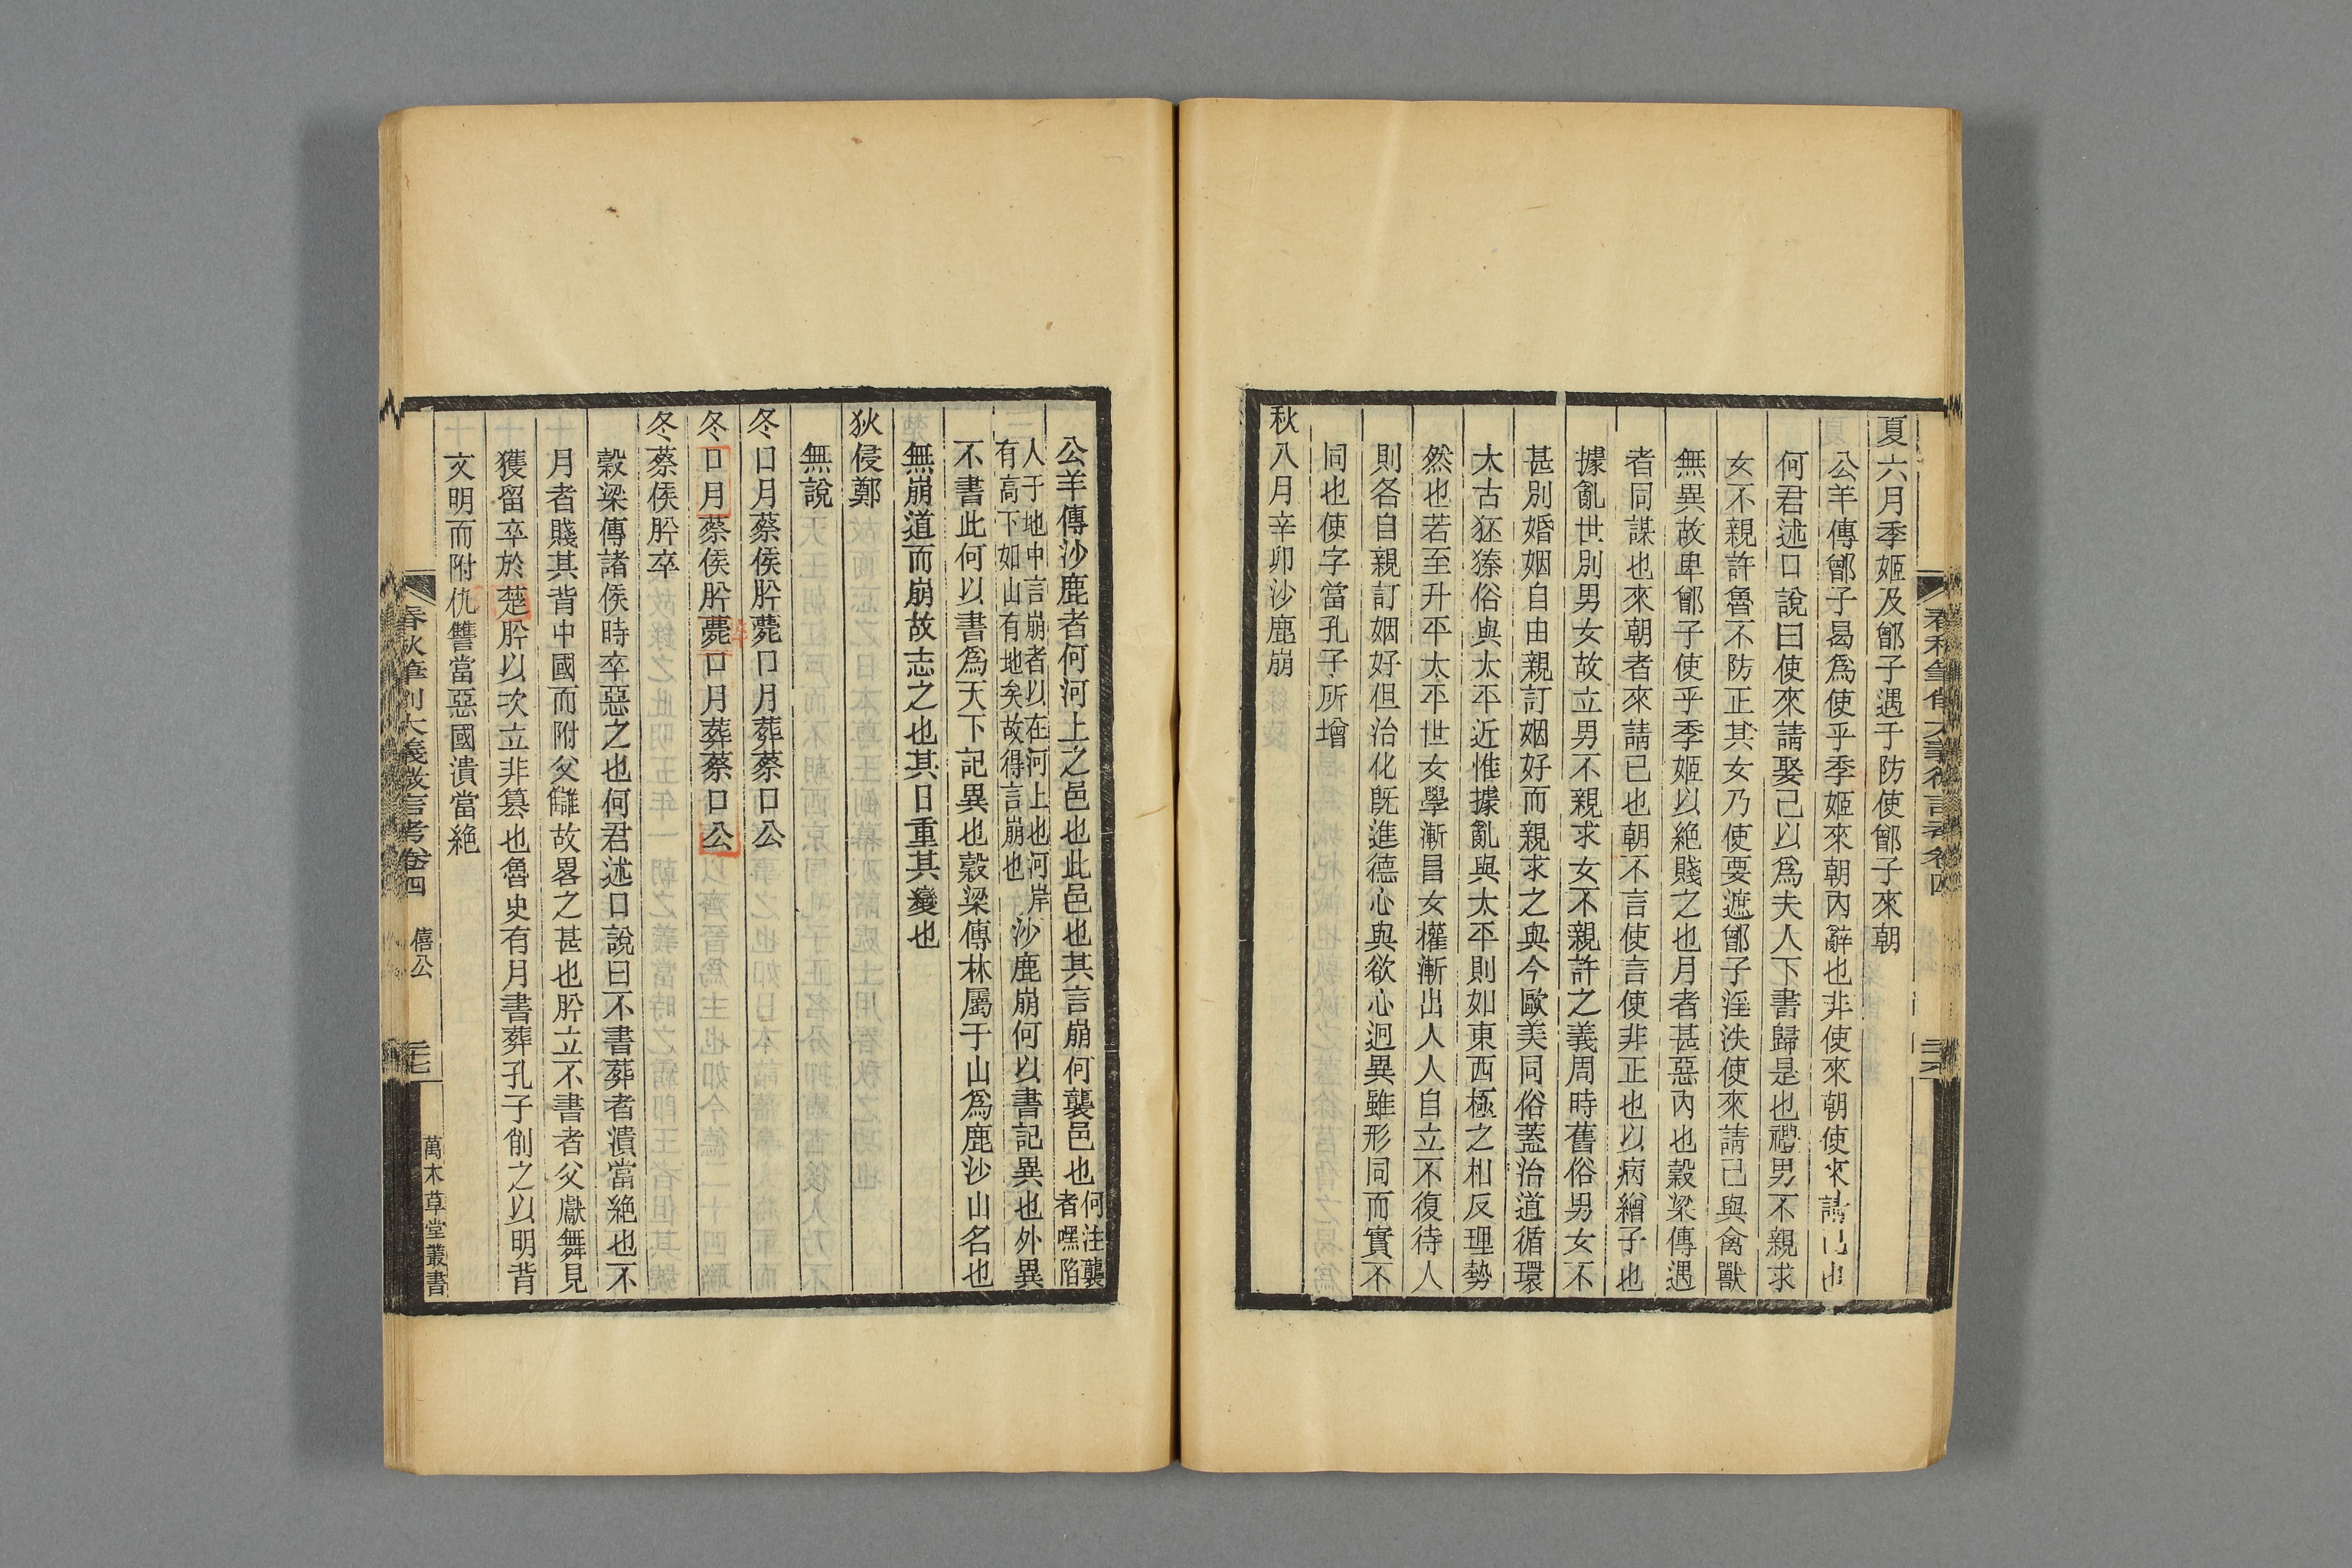 夏六月季姬及鄫子遇于防使鄫子來朝
公羊傳鄫子曷爲使乎季姬來朝內辭也非使來朝使來請己也
何君述口說曰使來請娶己以爲夫人下書歸是也禮男不親求
女不親許魯不防正其女乃使要遮鄫子淫泆使來請己與禽獸
無異故卑鄫子使乎季姬以絶賤之也月者甚惡內也穀梁傳遇
者同謀也來朝者來請己也朝不言使言使非正也以病繒子也
據亂世別男女故立男不親求女不親許之義周時舊俗男女不
甚別婚姻自由親訂姻好而親求之與今歐美同俗蓋治道循環
太古狉獉俗與太平近惟據亂與太平則如東西極之相反理勢
然也若至升平太平世女學漸昌女權漸出人人自立不復待人
則各自親訂姻好但治化既進德心與欲心迥異雖形同而實不
同也使字當孔子所增
秋八月辛卯沙鹿崩
公羊傳沙鹿者何河上之邑也此邑也其言崩何襲邑也何注襲者嘿陷
人于地中言崩者以在河上也河岸有高下如山有地矣故得言崩也沙鹿崩何以書記異也外異
不書此何以書爲天下記異也穀梁傳林屬于山爲鹿沙山名也
無崩道而崩故志之也其日重其變也
狄侵鄭
無說
冬口月蔡侯肸薨口月葬蔡口公
冬口月蔡侯肸薨口月葬蔡口公
冬蔡侯肸卒
穀梁傳諸侯時卒惡之也何君述口說曰不書葬者潰當絶也不
月者賤其背中國而附父讎故畧之甚也肸立不書者父獻舞見
獲留卒於楚肸以次立非簒也魯史有月書葬孔子削之以明背
文明而附仇讐當惡國潰當絶
春秋筆削大義微言考卷四
僖公
二十七
萬木草堂叢書